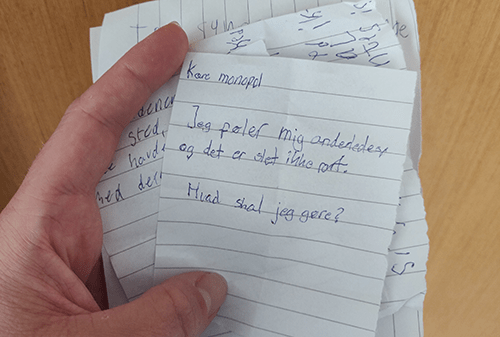 Kære monopol
Jeg føler mig anderledes,
og det er slet ikke rart.
Hvad skal jeg gøre?
sted,
hard
med den